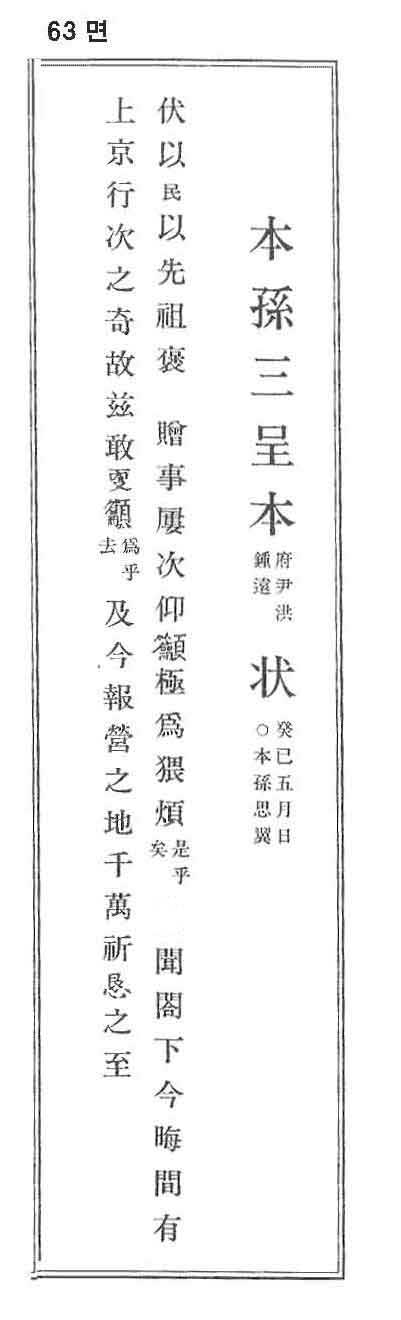 63 면
本孫三呈本府尹洪鍾遠狀癸巳五月日○本孫思翼
伏以民以先祖褒 贈事屢次仰籲極爲猥煩是乎矣 聞閤下今晦間有
上京行次之奇故玆敢更籲爲乎去及今報營之地千萬祈恳之至